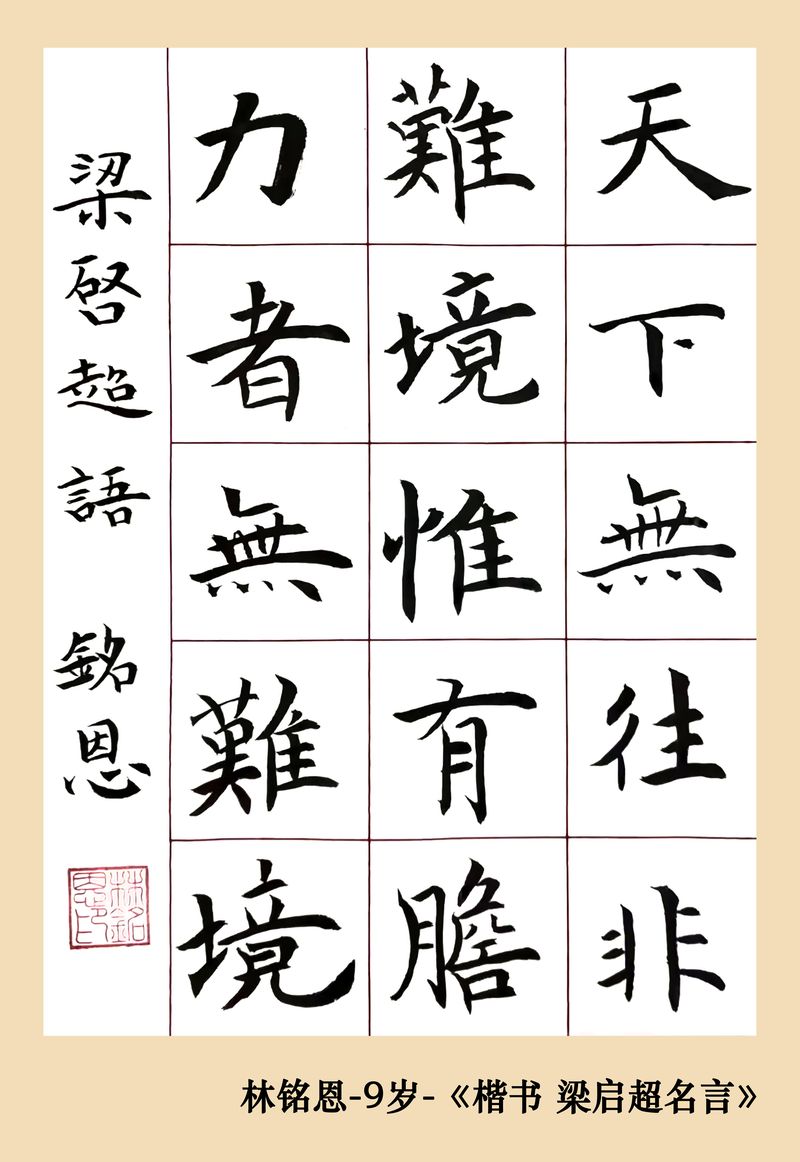 天下無往非
難境惟有膽
力者無難境
梁啓超語 銘恩
林銘恩印
林铭恩-9岁-《楷书 梁启超名言》